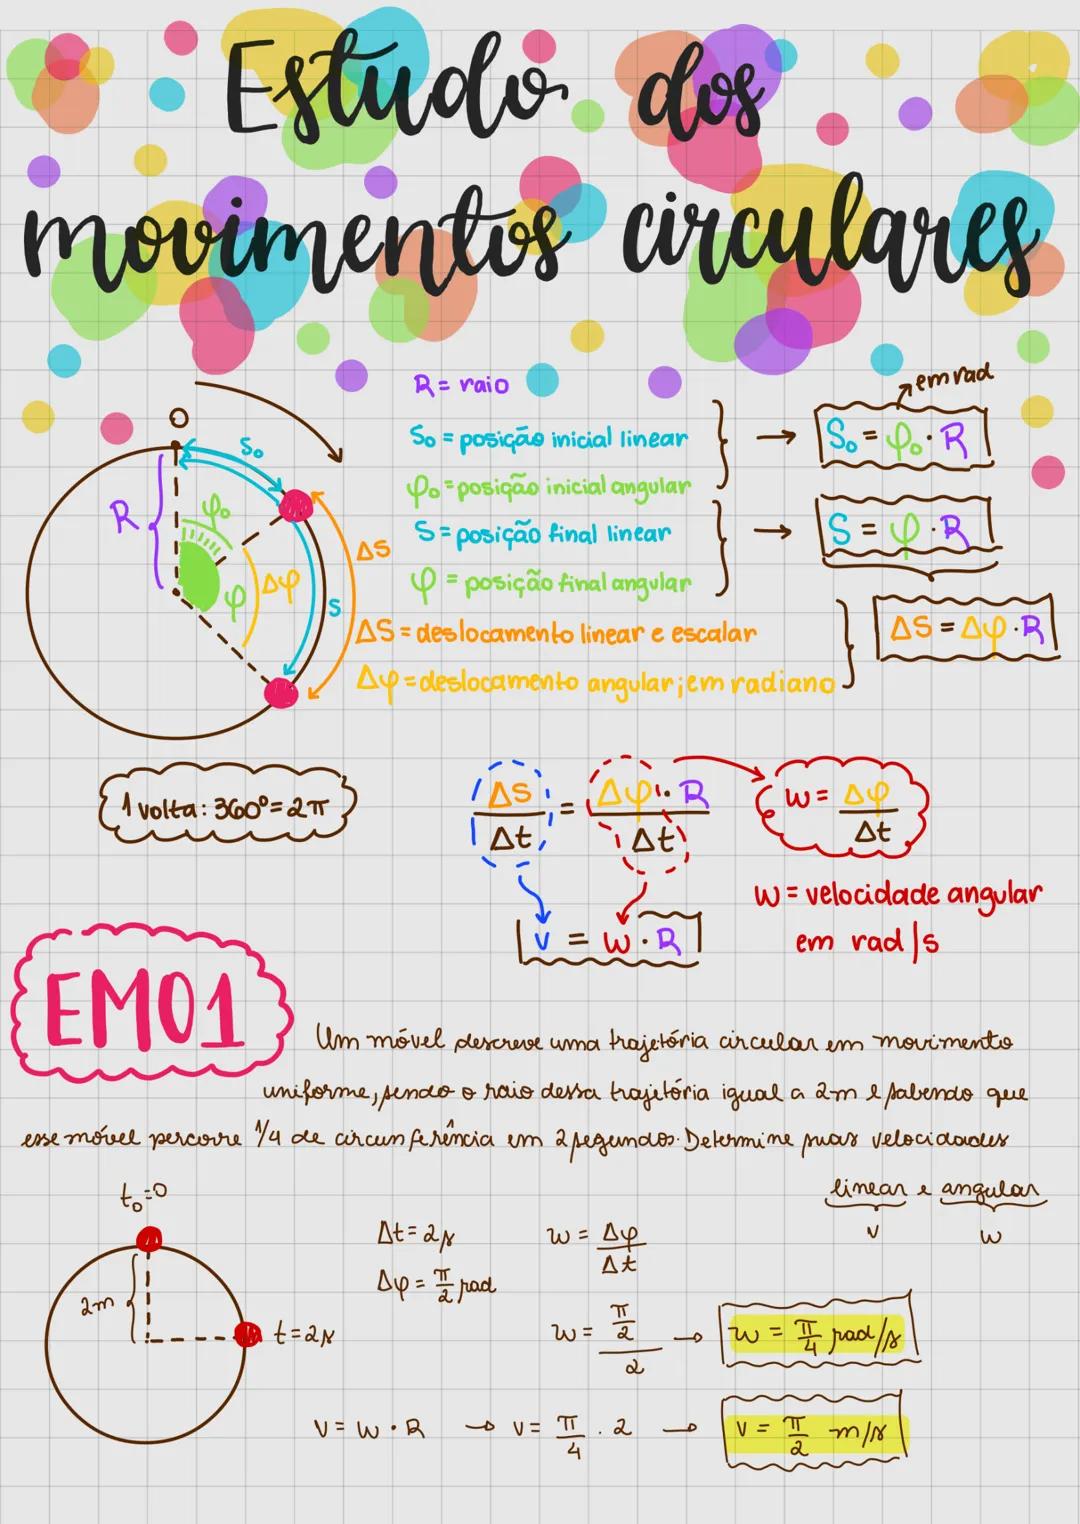 Estudo dos
movimentos circulares
R = raio
S₀ = posição inicial linear
φ₀ = posição inicial angular
S = posição final linear
φ = posição final angular
ΔS = deslocamento linear e escalar
Δφ = deslocamento angular; em radiano
em rad
S₀ = φ₀ · R
S = φ · R
ΔS = Δφ · R
O
S₀
R
φ₀
ΔS
φ
Δφ
S
1 volta: 360° = 2π
ΔS/Δt = Δφ · R/Δt
w = Δφ/Δt
v = w · R
w = velocidade angular
em rad/s
EM01
Um móvel descreve uma trajetória circular em movimento
uniforme, sendo o raio dessa trajetória igual a 2m e sabendo que
esse móvel percorre 1/4 de circunferência em 2 segundos. Determine suas velocidades
linear e angular
v w
t₀=0
2m
t=2s
Δt = 2s
Δφ = π/2 rad
w = Δφ/Δt
w = π/2/2 → w = π/4 rad/s
v = w · R → v = π/4 . 2 → v = π/2 m/s